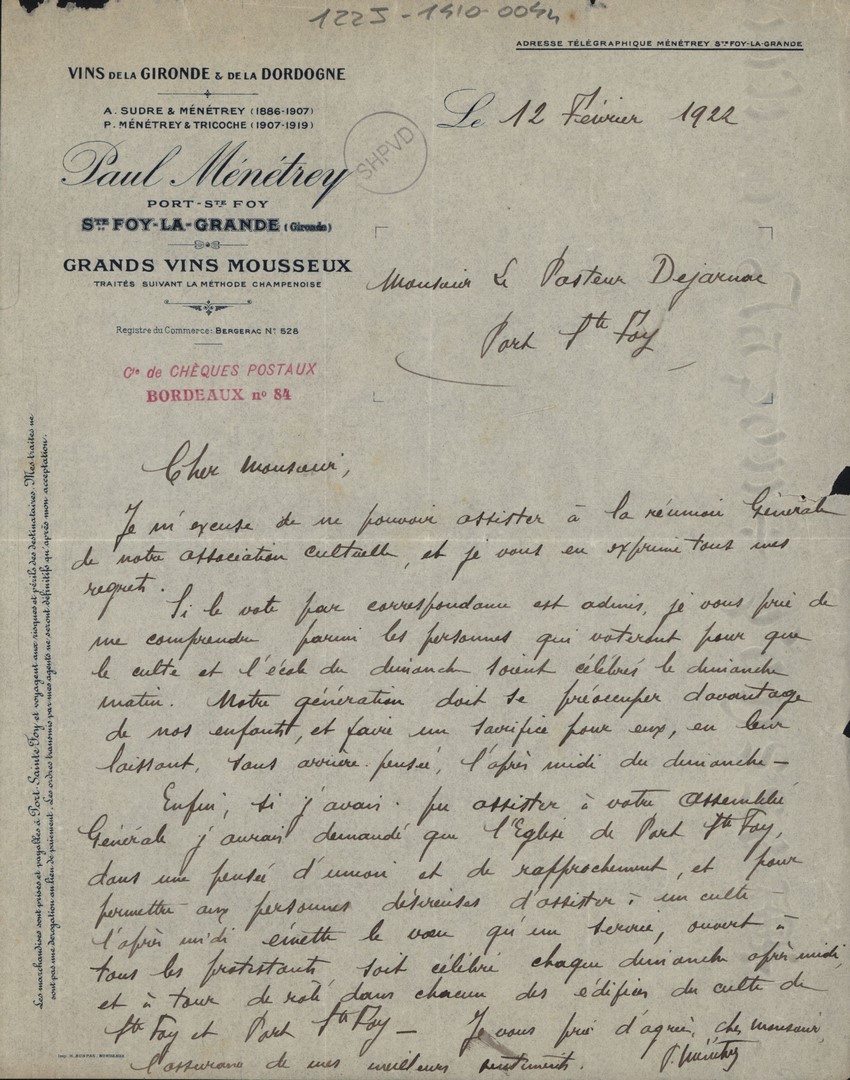 122J-1910-0054
ADRESSE TÉLÉGRAPHIQUE MÉNÉTREY STE FOY-LA-GRANDE
VINS DE LA GIRONDE & DE LA DORDOGNE
A. SUDRE & MÉNÉTREY (1886-1907)
P. MÉNÉTREY & TRICOCHE (1907-1919)
Paul Ménétrey
PORT-STE FOY
STE FOY-LA-GRANDE (Gironde)
GRANDS VINS MOUSSEUX
TRAITÉS SUIVANT LA MÉTHODE CHAMPENOISE
Registre du Commerce: BERGERAC No 528
Cte de CHÈQUES POSTAUX
BORDEAUX no 84
SHPVD
Le 12 Février 1922
Monsieur Le Pasteur Dejarnac
Port Ste Foy
Cher Monsieur,
Je m'excuse de ne pouvoir assister à la réunion Générale
de notre association cultuelle, et je vous en exprime tous mes
regrets.
Si le vote par correspondance est admis, je vous prie de
me comprendre parmi les personnes qui voteront pour que
le culte et l'école du dimanche soient célébrés le dimanche
matin. Notre génération doit se préoccuper davantage
de nos enfants, et faire un sacrifice pour eux, en leur
laissant, sans arrière-pensée, l'après midi du dimanche -
Enfin, si j'avais pu assister à votre Assemblée
Générale j'aurais demandé que l'Eglise de Port Ste Foy,
dans une pensée d'union et de rapprochement, et pour
permettre aux personnes désireuses d'assister à un culte
l'après midi émette le vœu qu'un service, ouvert à
tous les protestants soit célébré chaque dimanche après midi,
et à tour de rôle dans chacun des édifices du culte de
Ste Foy et Port Ste Foy - Je vous prie d'agréer, cher Monsieur,
l'assurance de mes meilleurs sentiments. P. Ménétrey
Les marchandises sont prises et payables à Port-Sainte-Foy et voyagent aux risques et périls des destinataires. Mes traites ne
sont pas une dérogation au lieu de paiement. Les ordres transmis par mes agents ne seront définitifs qu'après mon acceptation.